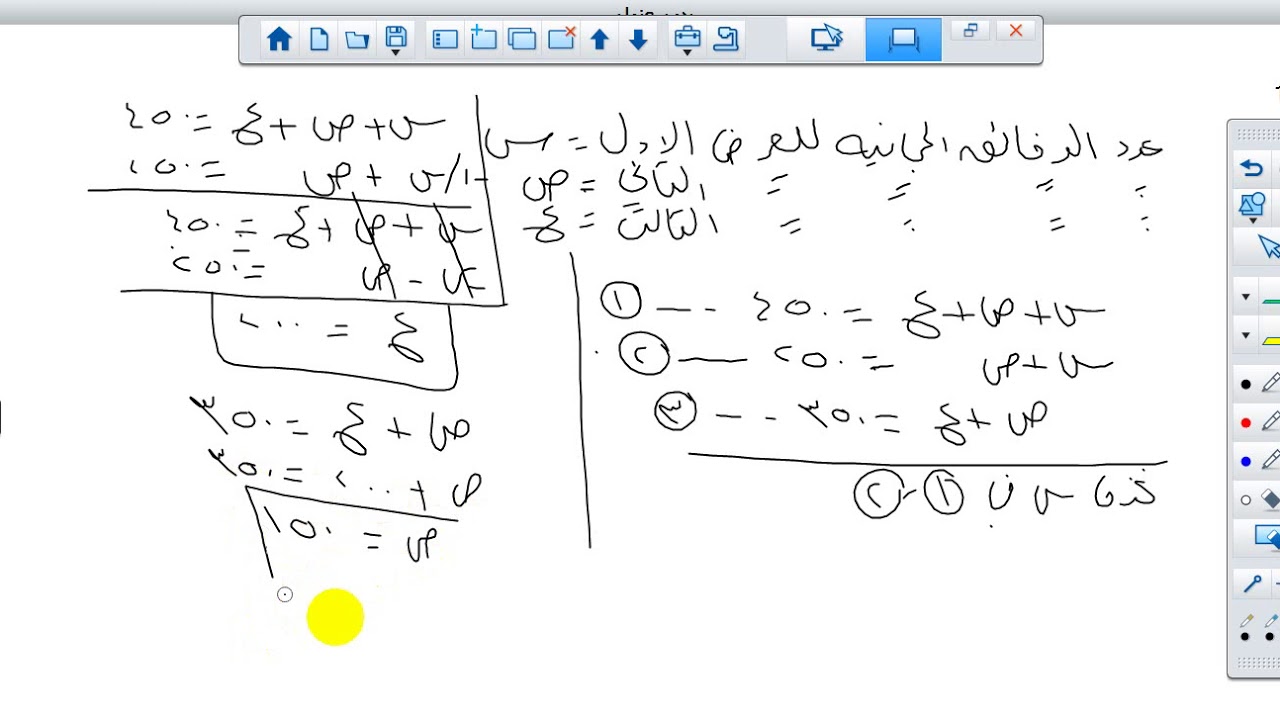 عدد الدقائق المجانيه للعرض الاول = س
〃 〃 〃 〃 الثاني = ص
〃 〃 〃 〃 الثالث = ع
س + ص + ع = ٤٥٠ --- ①
س + ص = ٢٥٠ --- ②
ص + ع = ٣٥٠ --- ③
س في ① ، ②
س + ص + ع = ٤٥٠
-١/ س + ص = ٢٥٠
س + ص + ع = ٤٥٠
-س - ص = ٢٥٠
ع = ٢٠٠
ص + ع = ٣٥٠
ص + ٢٠٠ = ٣٥٠
ص = ١٥٠